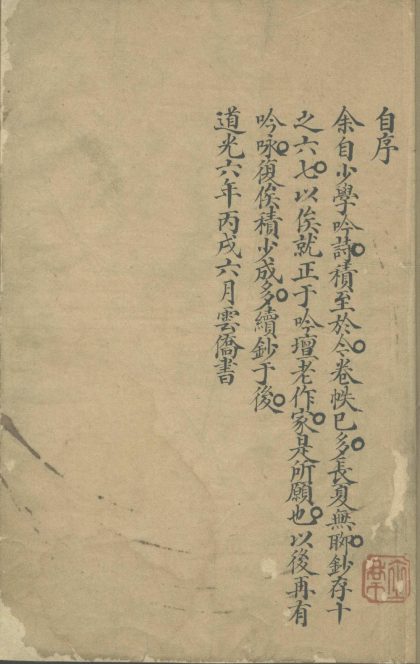 自序
余自少學吟詩積至於今卷帙已多長夏無聊鈔存十
之六七以俟就正于吟壇老作家是所願也以後再有
吟咏復俟積少成多續鈔于後
道光六年丙戌六月雲僑書